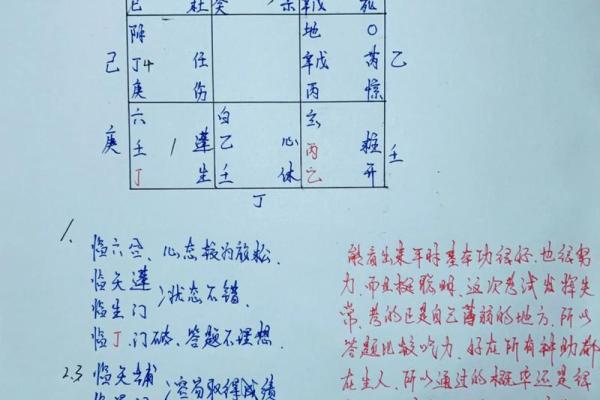 阵 地 〇
己 丁4 任 戊 芮 乙
庚 伤 丙 惊
六 白 玄
庚 壬 1 蓬 乙 心 丙 柱 壬
丁 生 壬 休 乙 开
丁
1.
临六合、心态较为放松.
临天蓬
临生门 }状态不错.
临丁.门破、答题不理想.
2.3 临天辅 }容易取得成绩
能看出来平时基本功很好.也很努
力.而且挺聪明.这次考试发挥失
常.考的已是自己薄弱的地方.所以
答题比较吃力.好在所有神助都
在生人.所以通过的概率还是很